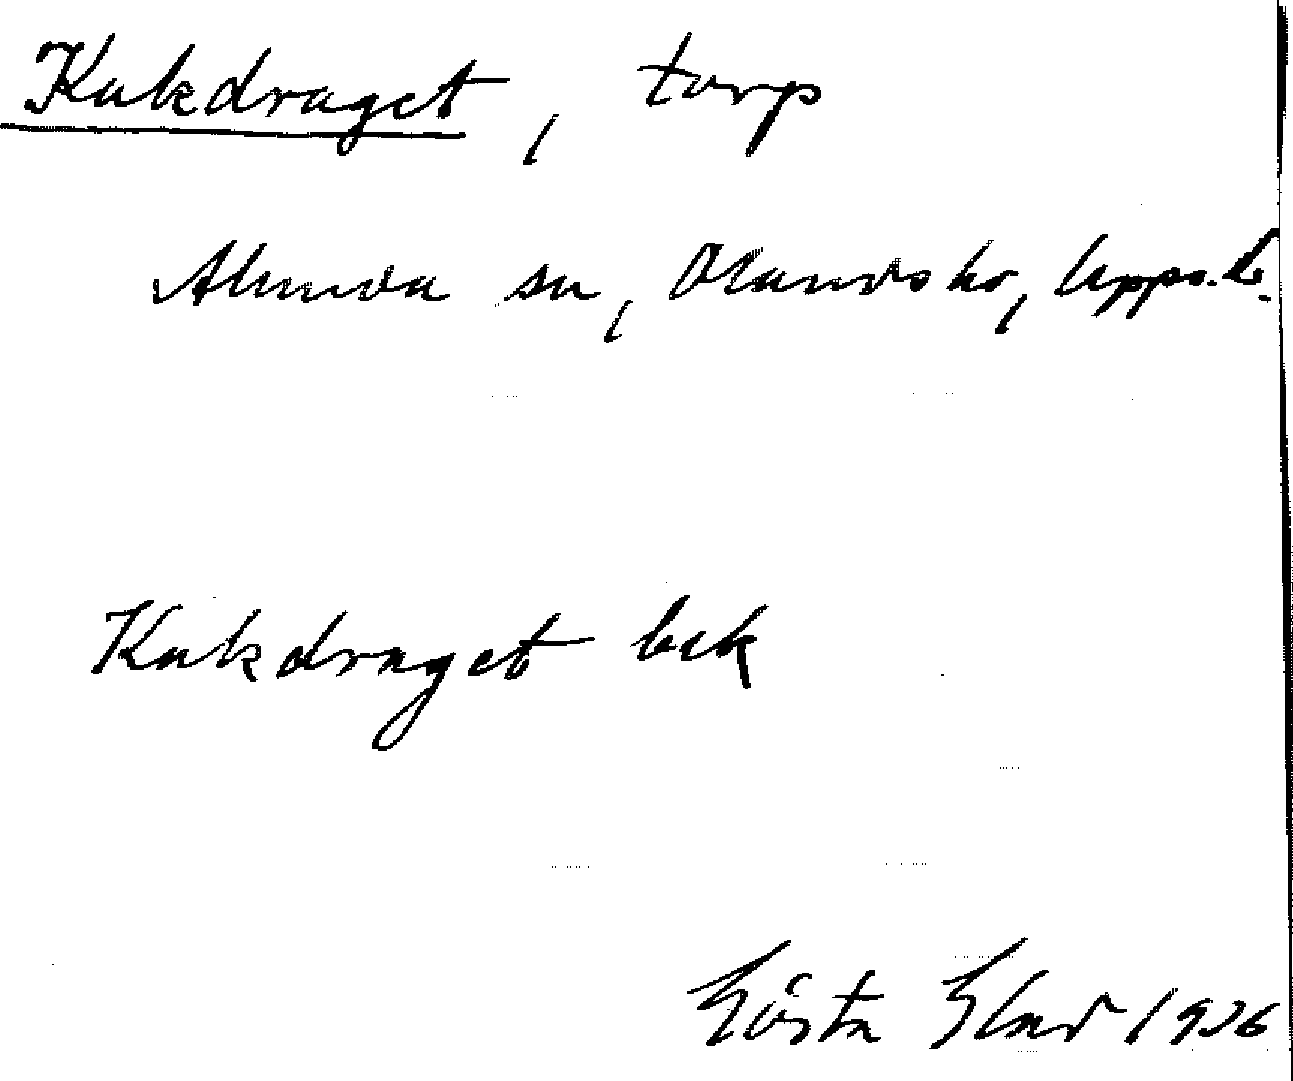 Kukdraget, torp
Alunda sn, Olands hd, Upps. l.
Kukdraget bek
Gösta Elav 1936